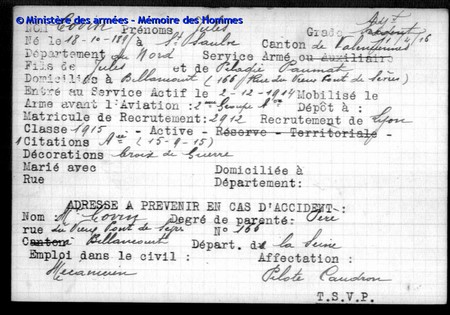 © Ministère des armées - Mémoire des Hommes
Nom Covin Prénoms Jules Grade Sergent
Né le 18-10- à St Saulve Canton de Valenciennes
Département du Nord Service Armé ou Auxiliaire
Fils de Jules et de Pélagie
Domicilié à Billancourt (166, Rue du Vieux Pont de Sèvres)
Entré au Service Actif le 2-12-1914 Mobilisé le
Arme avant l'Aviation : 2me Groupe Aon Dépôt à :
Matricule de Recrutement: 2912 Recrutement de Lyon
Classe 1915 - Active - Réserve - Territoriale -
1 Citations Aée (15-9-15)
Décorations Croix de Guerre
Marié avec Domiciliée à
Rue Département:
ADRESSE A PREVENIR EN CAS D'ACCIDENT :
Nom : Mr Covin Degré de parenté: Père
rue du Vieux Pont de Sèvres N° 166
Canton Billancourt Départ. de la Seine
Emploi dans le civil : Affectation :
Mécanicien Pilote Caudron
T.S.V.P.